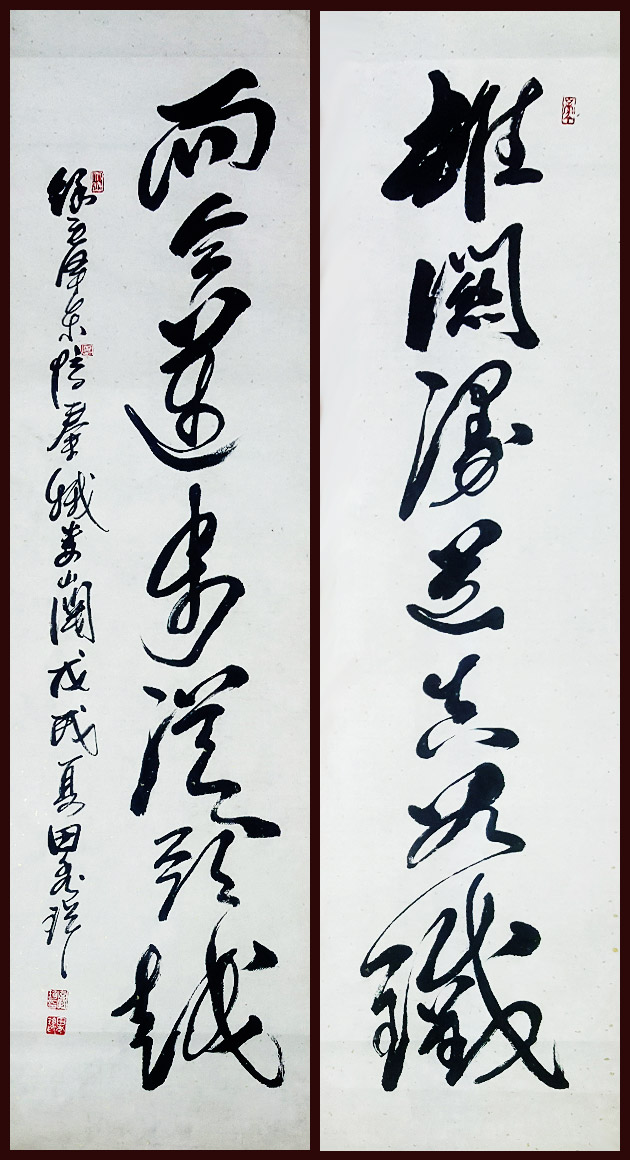 雄關漫道真如鐵
而今邁步從頭越
錄毛澤東憶秦娥婁山關戊戌夏田